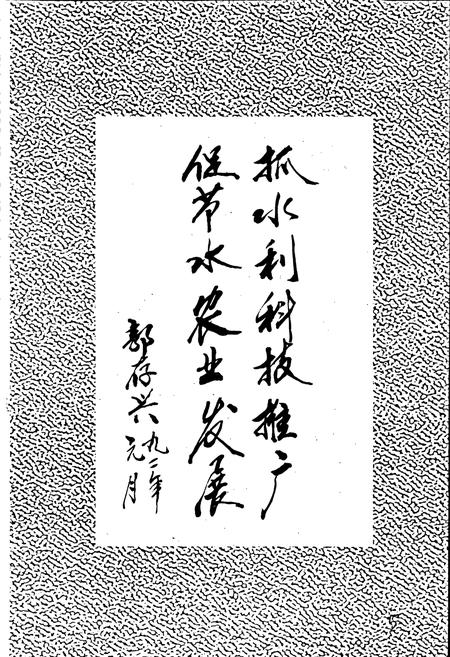 抓水利科技推广
促节水农业发展
郭存兴
九二年
元月